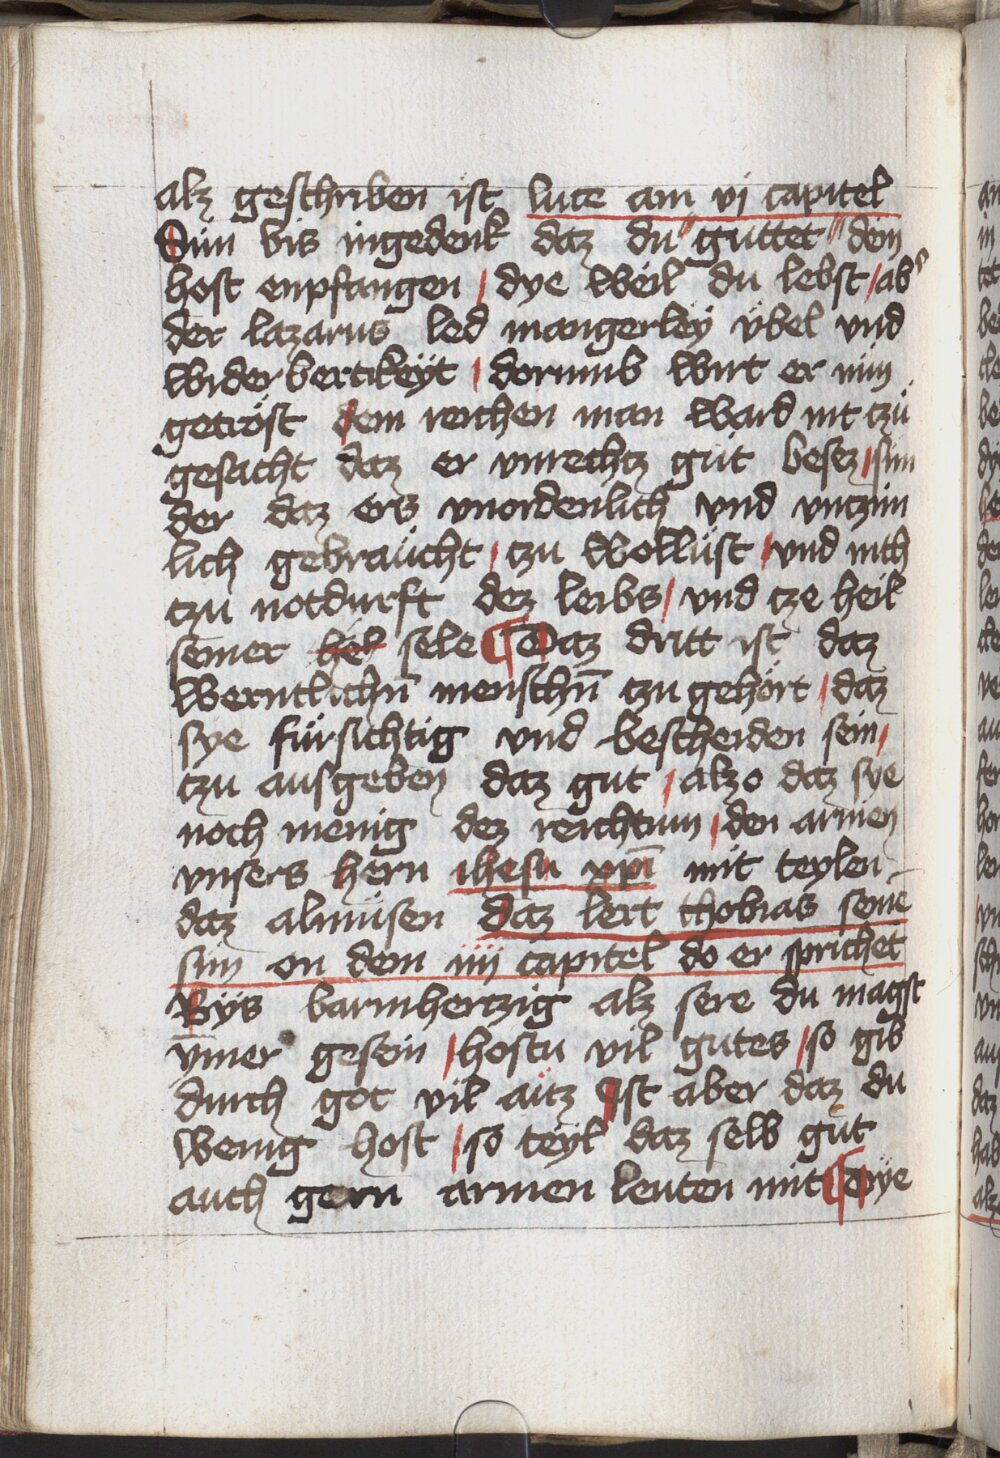 alz geschriben ist luce am vj capitel
Sun bis ingedenk daz du "guttet" dein
host enpfangen / dye weil du lebst / ab'
der lazarus led mangerley übel vnd
widerbertikeyt / dorumb wirt er nun
getröst dem reichen man ward nit czu
gesacht daz er vnrechtz gut besez / sun
der daz ers vnordenlich vnd vnczim
lich gebraucht / czu wollust / vnd nich
czu notdurft dez leibs / vnd cze heil
seiner hel sele ¶ Daz dritt ist daz
werntlichn̄ menschn̄ czu gehört / daz
sye fürsichtig vnd bescheiden sein /
czu ausgeben daz gut / alzo daz sye
noch menig dez reichtum / den armen
vnsers hern ihesu xp̄i mit teylen
daz almusen daz lert thobias seinē
sun on dem iiij capitel do er sprichet
Bys barmhertzig alz sere du magst
ymer gesein / hostu vil gutes / so gib
durch got vil autz Ist aber daz du
wenig host / so teyl daz selb gut
auch gern armen leuten mit ¶ Dye